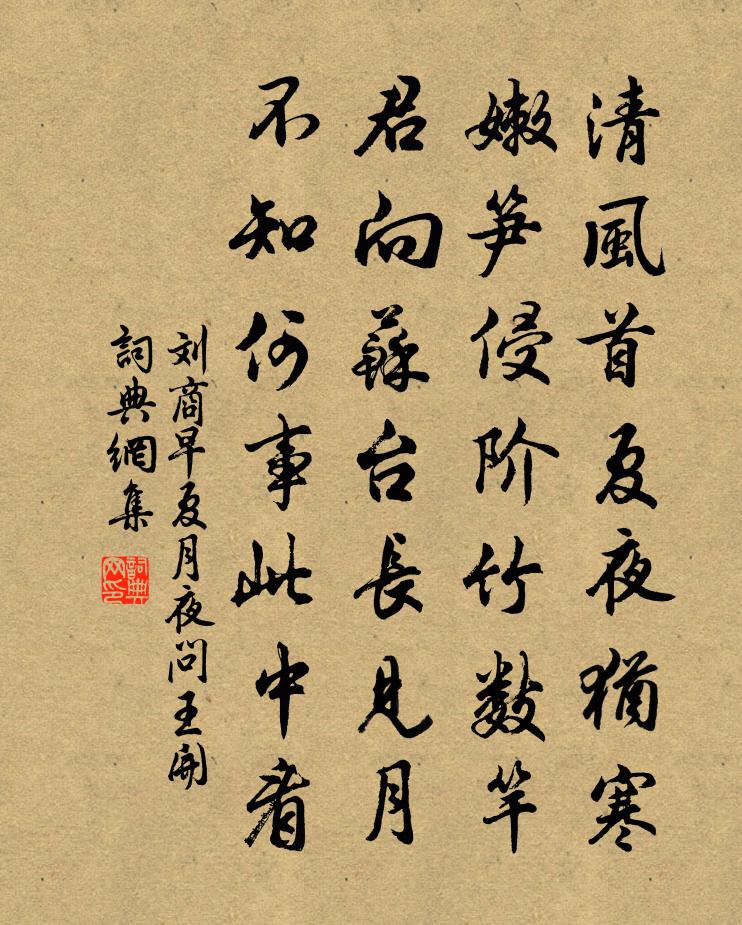 清風首夏夜猶寒
嫩笋侵阶竹数竿
君向蘇台長見月
不知何事此中看
刘商早夏月夜問王開
詞典網集
詞典網印